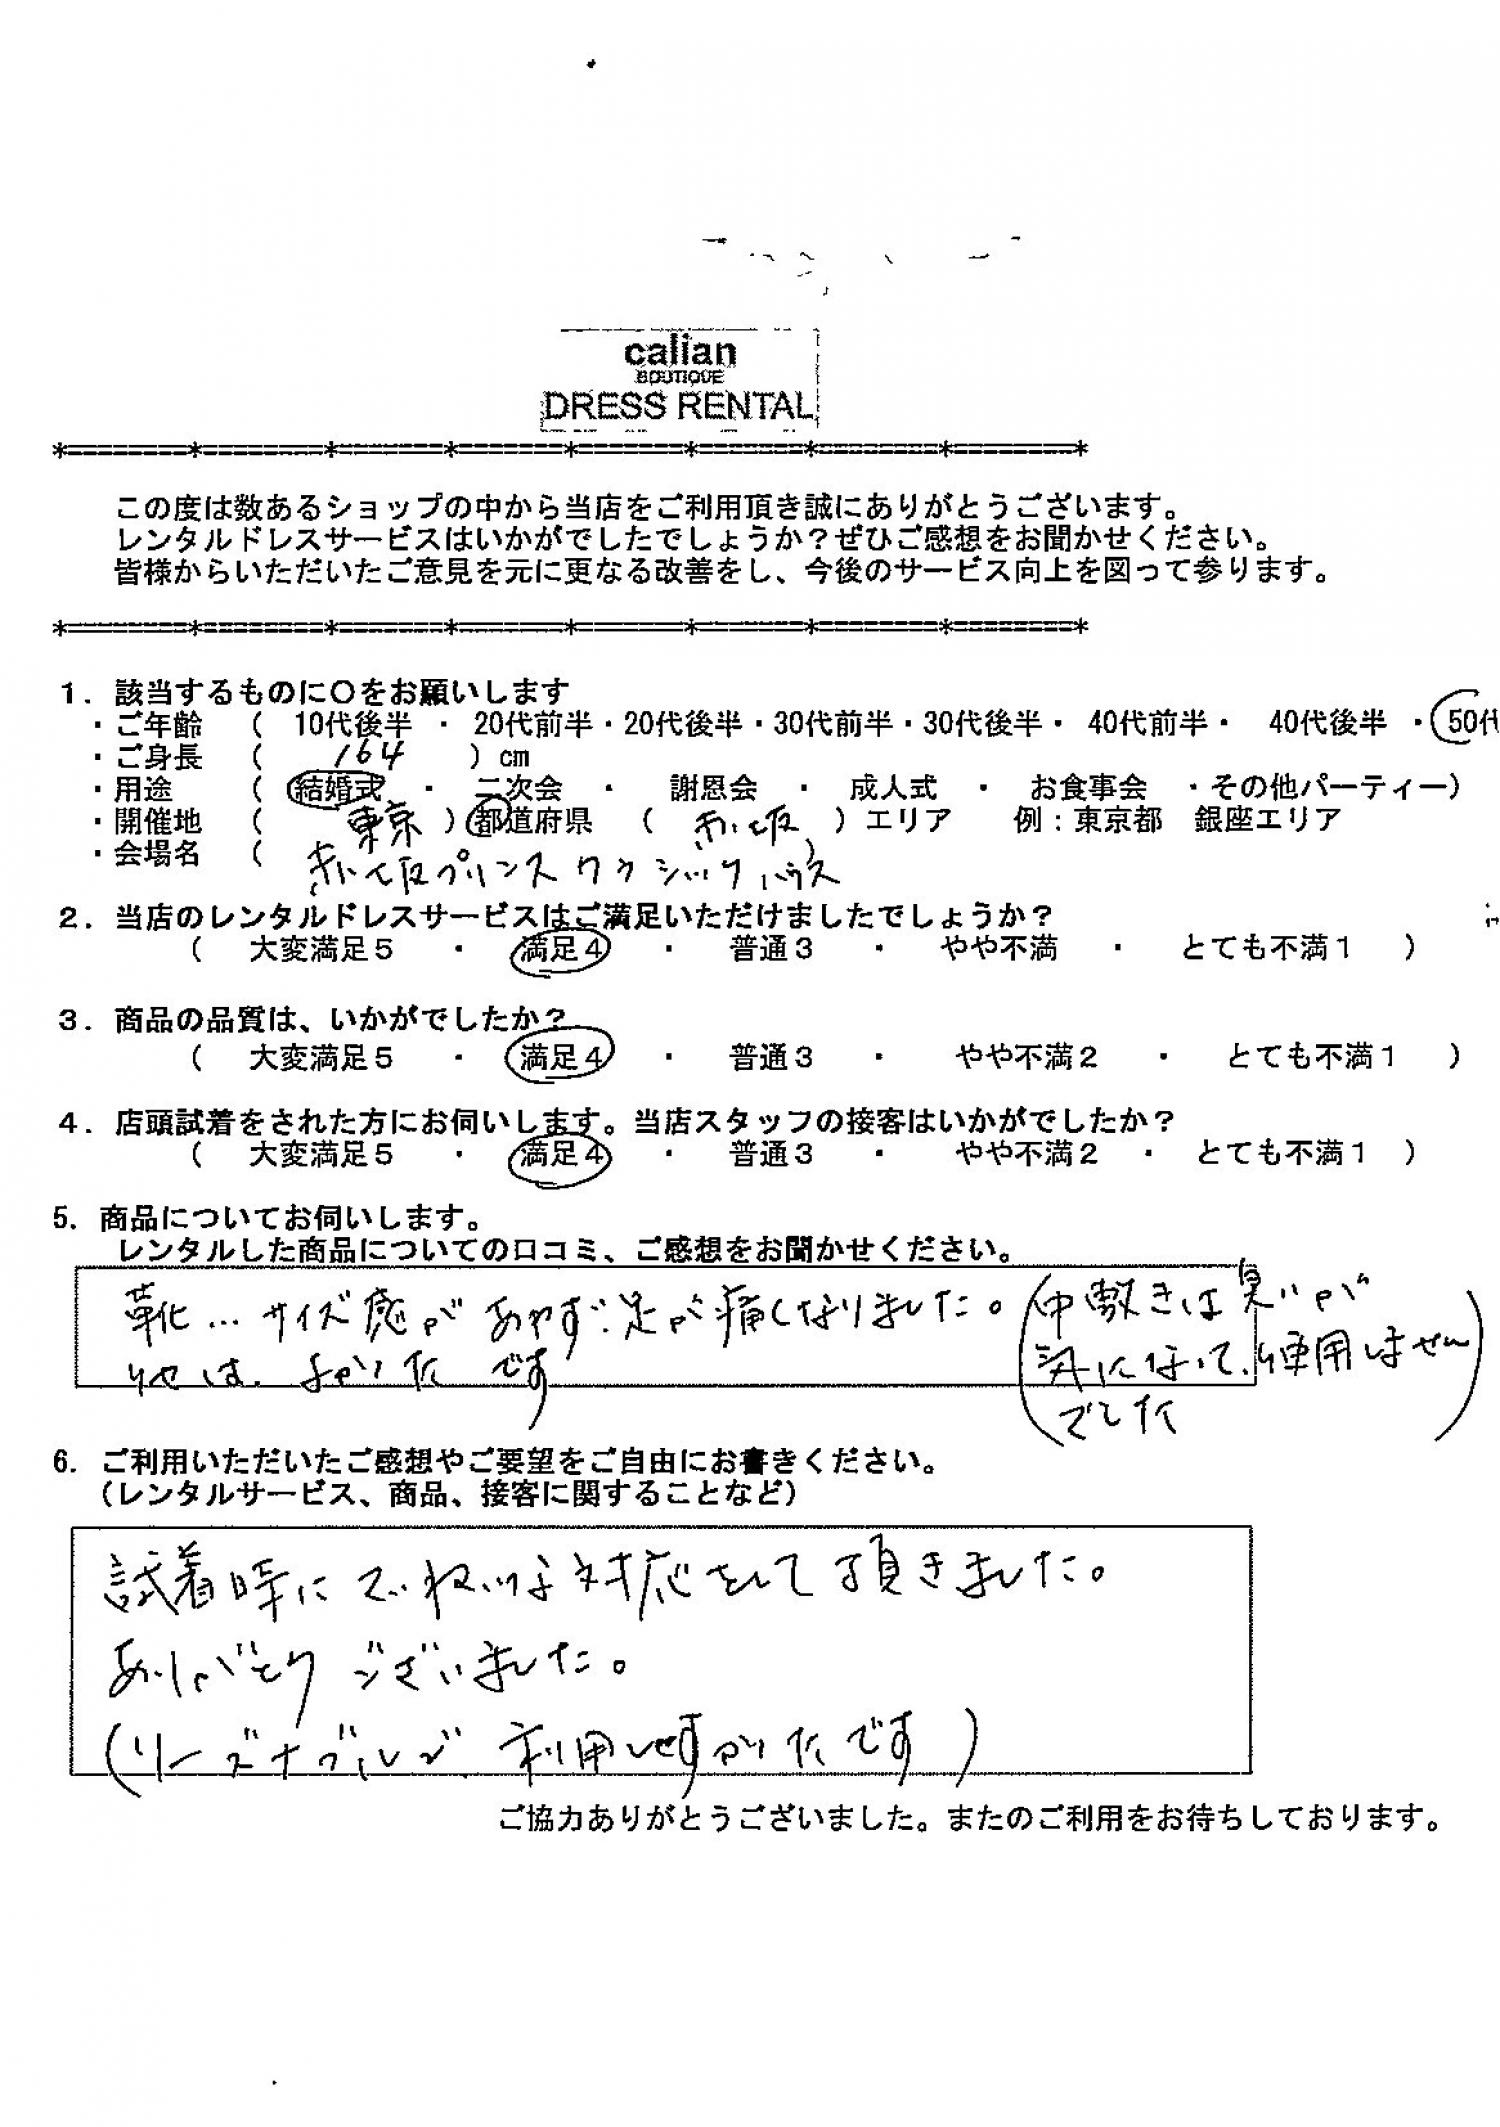 calian
BOUTIQUE
DRESS RENTAL
*========*========*=======*=======*=======*=======*========*========*
この度は数あるショップの中から当店をご利用頂き誠にありがとうございます。
レンタルドレスサービスはいかがでしたでしょうか？ぜひご感想をお聞かせください。
皆様からいただいたご意見を元に更なる改善をし、今後のサービス向上を図って参ります。
*========*========*=======*=======*=======*=======*========*========*
１．該当するものに〇をお願いします
・ご年齢 （ 10代後半 ・ 20代前半・20代後半・30代前半・30代後半・ 40代前半・ 40代後半 ・50代
・ご身長 （ 164 ）cm
・用途 （ 結婚式 ・ 二次会 ・ 謝恩会 ・ 成人式 ・ お食事会 ・その他パーティー）
・開催地 （ 東京 ）都道府県 （ 赤坂 ）エリア 例：東京都 銀座エリア
・会場名 （ 赤坂プリンスクラシックハウス ）
２．当店のレンタルドレスサービスはご満足いただけましたでしょうか？
（ 大変満足５ ・ 満足４ ・ 普通３ ・ やや不満 ・ とても不満１ ）
３．商品の品質は、いかがでしたか？
（ 大変満足５ ・ 満足４ ・ 普通３ ・ やや不満２ ・ とても不満１ ）
４．店頭試着をされた方にお伺いします。当店スタッフの接客はいかがでしたか？
（ 大変満足５ ・ 満足４ ・ 普通３ ・ やや不満２ ・ とても不満１ ）
5．商品についてお伺いします。
レンタルした商品についての口コミ、ご感想をお聞かせください。
靴…サイズ感があわず、足が痛くなりました。（中敷きは臭いが
気になって、使用しません
でした）
他は、よかったです
6．ご利用いただいたご感想やご要望をご自由にお書きください。
（レンタルサービス、商品、接客に関することなど）
試着時にていねいな対応をして頂きました。
ありがとうございました。
（リーズナブルで、利用しやすかったです）
ご協力ありがとうございました。またのご利用をお待ちしております。